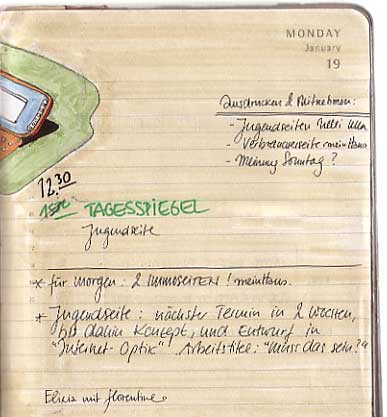 MONDAY
January
19
Ausdrucken & Mitnehmen:
- Jugendseiten
- Verbraucherseite meinHaus
- Meinung Sonntag?
12.30
TAGESSPIEGEL
Jugendseite
* für morgen: 2 IMMOSEITEN! meinHaus.
* Jugendseite: nächster Termin in 2 Wochen,
bis dahin Konzept, und Entwurf in
"Internet-Optik". Arbeitstitel: "Muss das sein?"
mit Florentine.